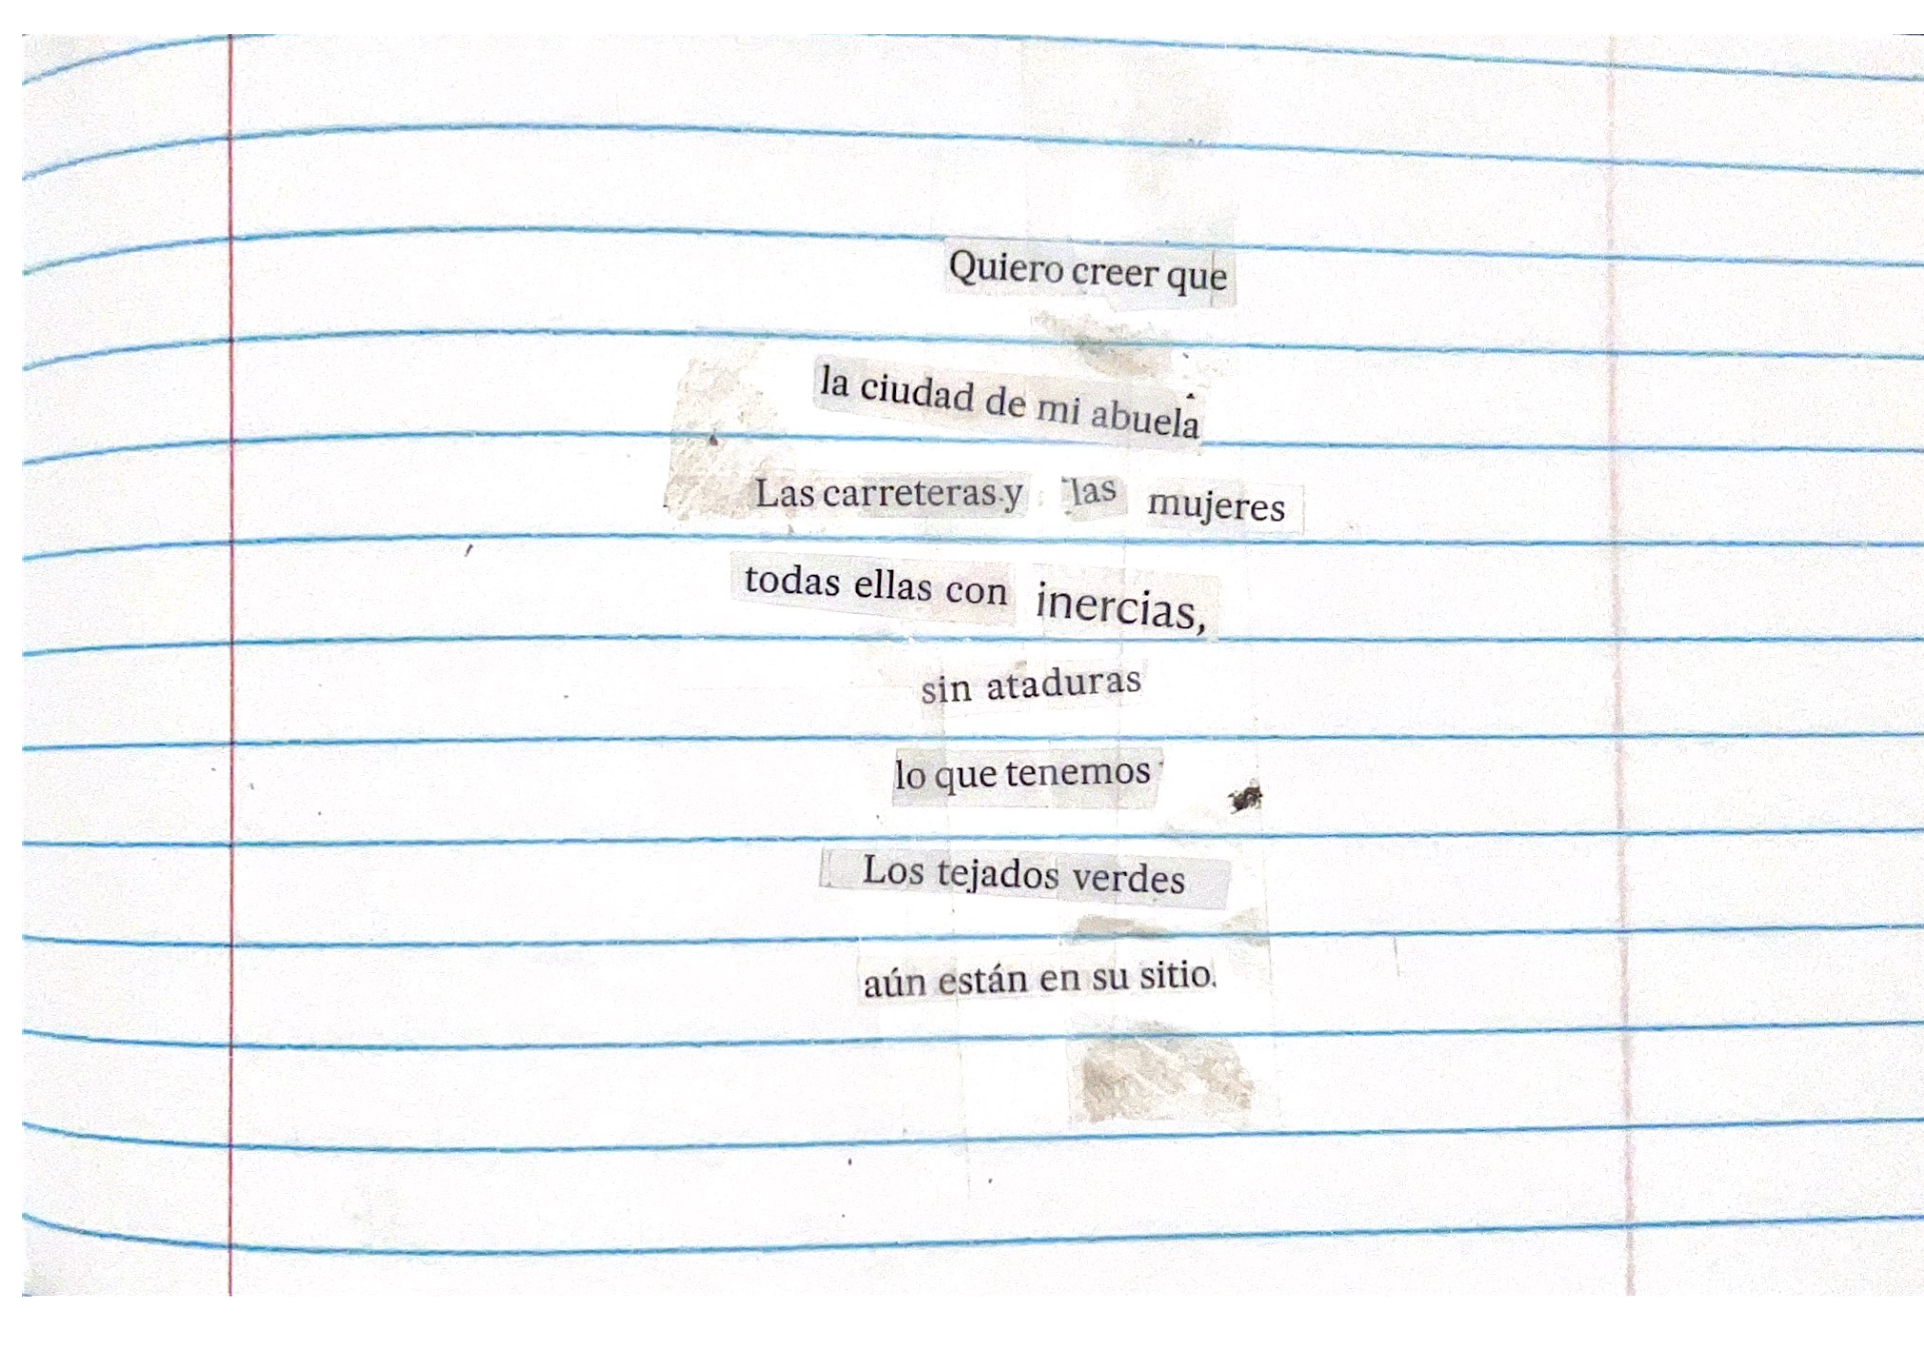 Quiero creer que
la ciudad de mi abuela
Las carreteras y las mujeres
todas ellas con inercias,
sin ataduras
lo que tenemos
Los tejados verdes
aún están en su sitio.